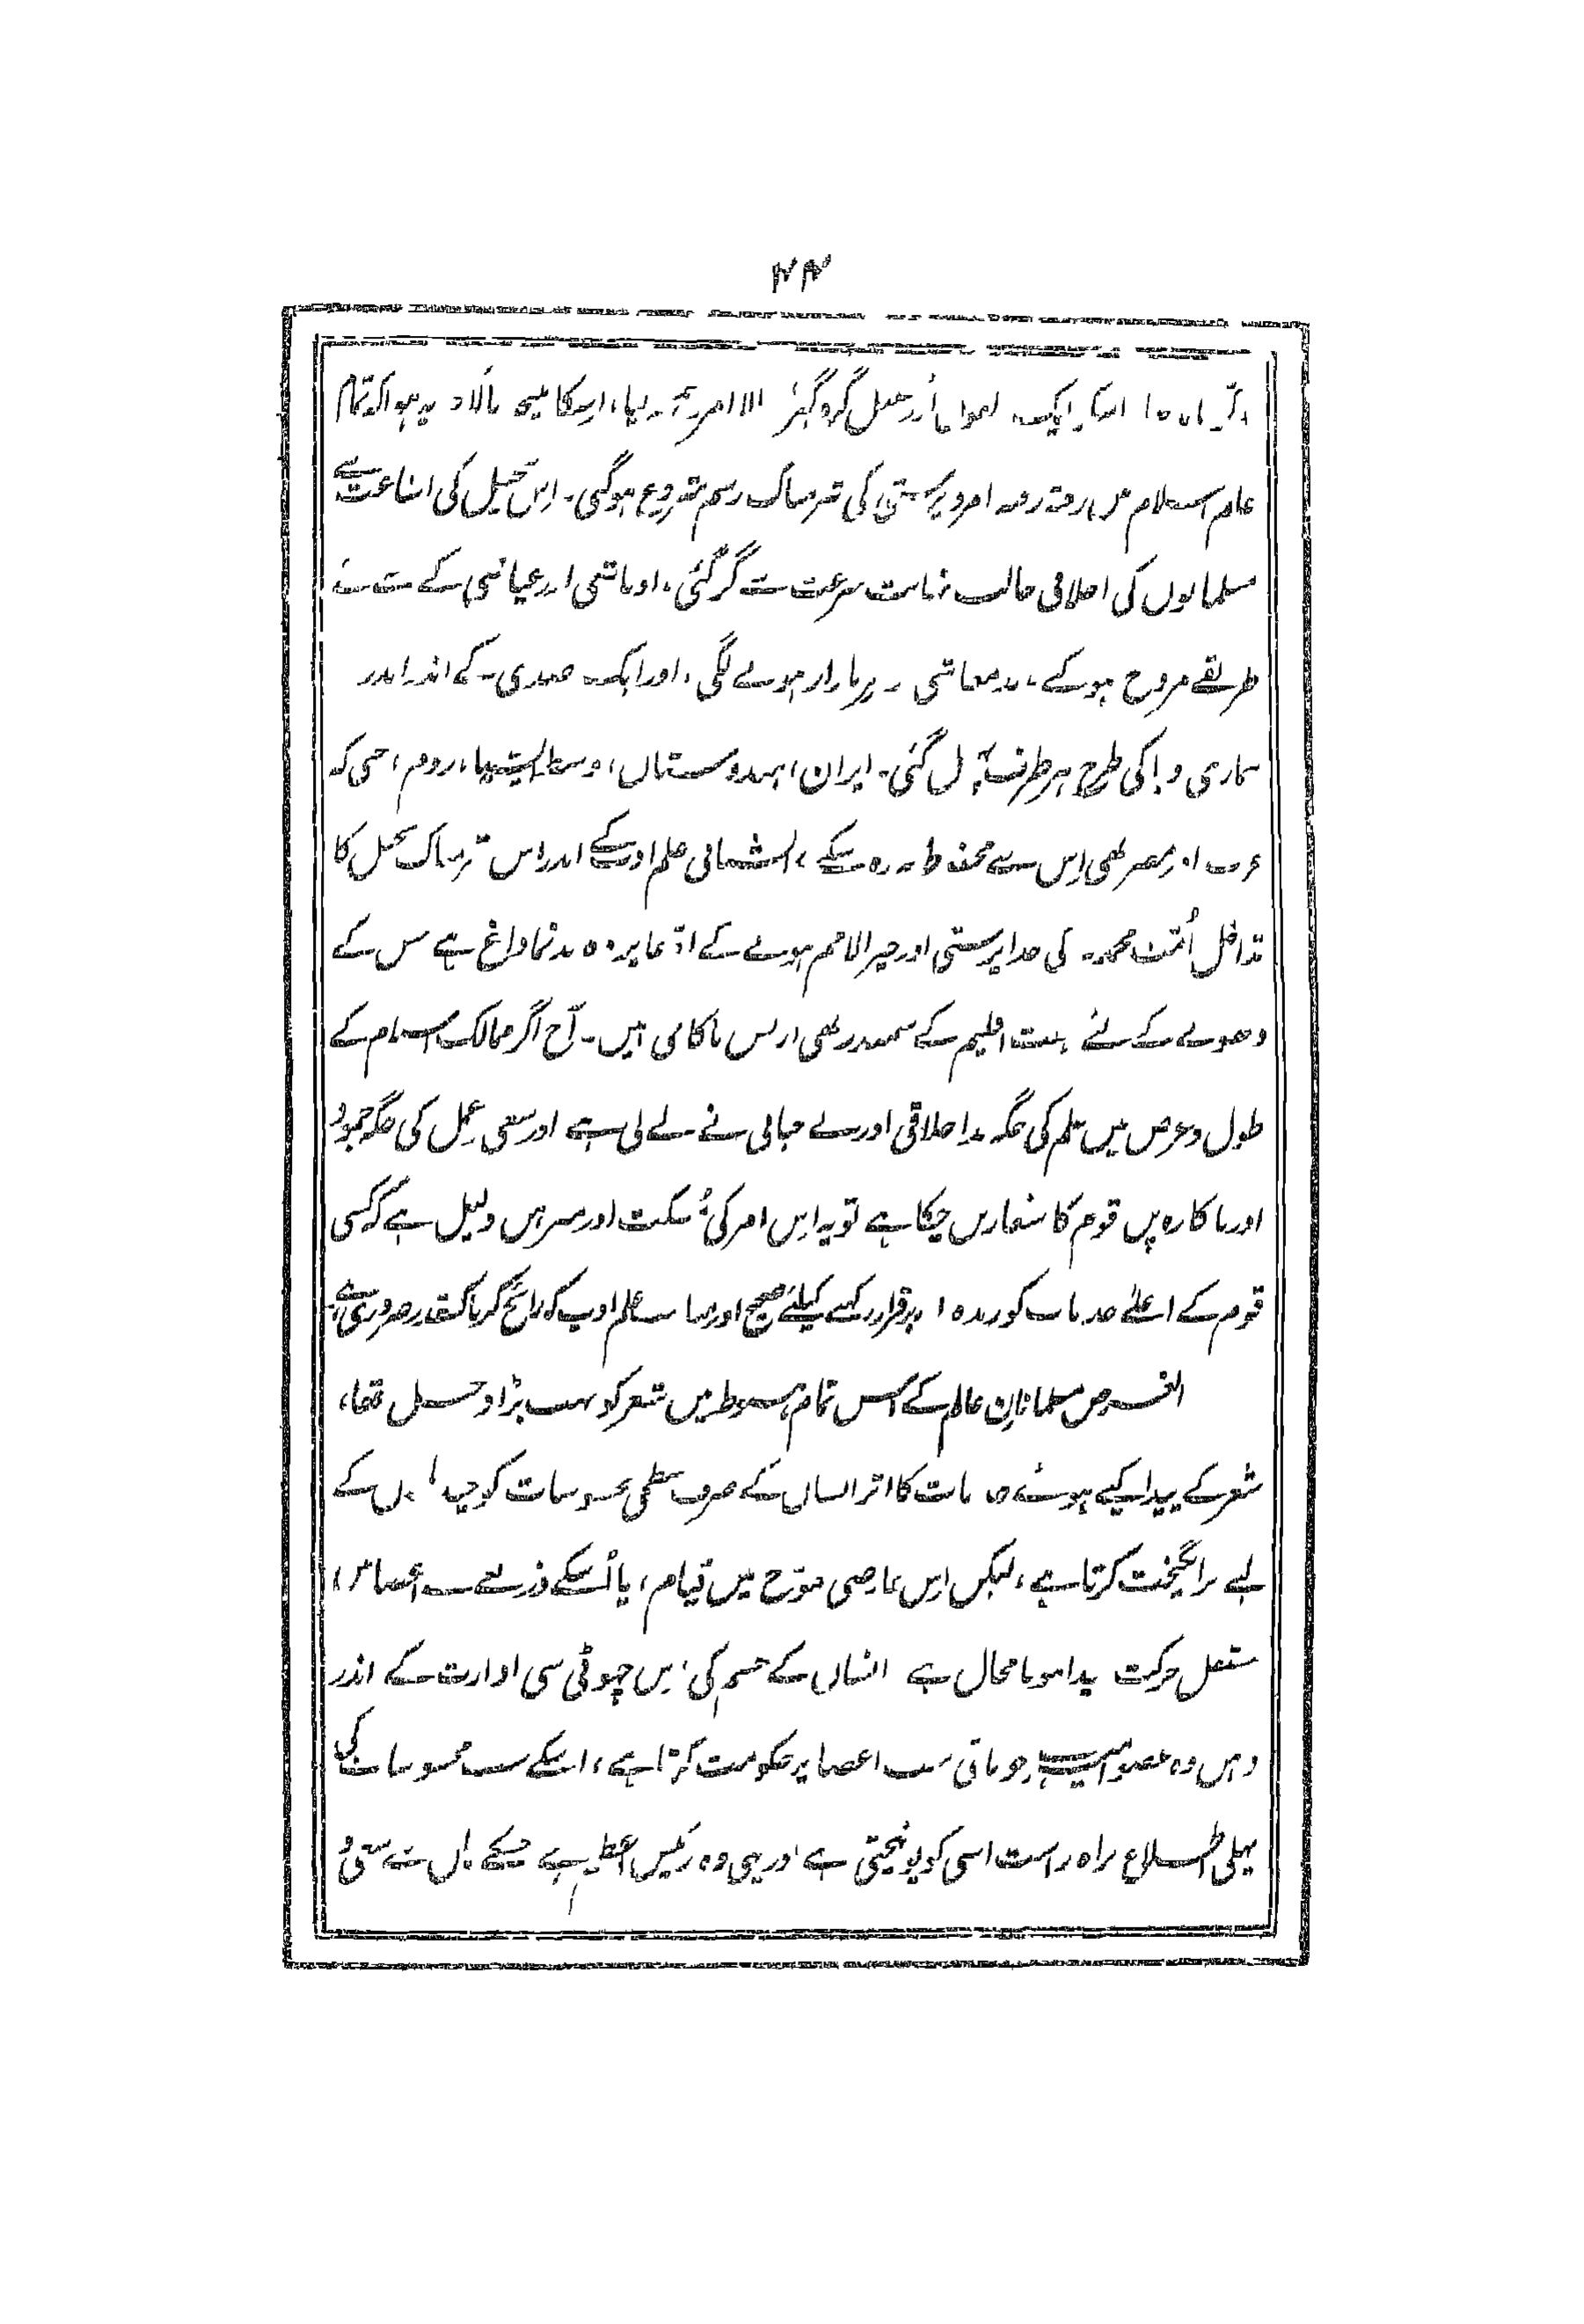 ۴۴
اسکا نتیجہ بالآخر یہ ہوا کہ تمام
عالم اسلام میں رفتہ رفتہ امرد پرستی کی شرمناک رسم شروع ہوگئی۔ اِس تخیل کی اشاعت سے
مسلمانوں کی اخلاقی حالت نہایت سرعت سے گر گئی، اوباشی اور عیاشی کے نت نئے
طریقے مروج ہو گئے، بدمعاشی پر ہونے لگی، اور ایک صدی کے اندر اندر
بیماری وبا کی طرح ہر طرف پھیل گئی۔ ایران، ہندوستان، وسط ایشیا، روم، حتی کہ
عرب اور مصر بھی اِس سے محفوظ نہ رہ سکے، ایشیائی علم ادب کے اندر اس شرمناک تخیل کا
تداخل اُمّت محمدیہ کی خدا پرستی اور خیر الامم ہونے کے ادّعا پر وہ بدنما داغ ہے جس کے
دھونے کے لئے ہفت اقلیم کے سمندر بھی از بس ناکافی ہیں۔ آج اگر ممالک اسلام کے
طول و عرض میں علم کی جگہ بد اخلاقی اور بے حیائی نے لے لی ہے اور سعی عمل کی جگہ جمود
اور ناکارہ پن قوم کا شعار بن چکا ہے تو یہ اِس امر کی مُسکت اور مبرہن دلیل ہے کہ کسی
قوم کے اعلےٰ جذبات کو زندہ اور برقرار رکھنے کیلئے صحیح اور علم ادب کو رائج کرنا کسقدر ضروری ہے،
الغرض مسلمانانِ عالم کے اس تمام ہبوط میں شعر کو بہت بڑا دخل تھا،
شعر کے پیدا کیے ہوئے جذبات کا اثر انسان کے صرف سطحی محسوسات کو چند لمحوں کے
لیے برانگیختہ کرتا ہے، لیکن اِس عارضی تموّج میں قیام، یا اُسکے ذریعے سے اعضا میں
مستقل حرکت پیدا ہونا محال ہے انسان کے جسم کی اِس چھوٹی سی ادارت کے اندر
ذہن وہ عضو رئیس ہے جو باقی سب اعضا پر حکومت کرتا ہے، اسکے سب محسوسات کی
پہلی اطلاع براہ راست اسی کو پہنچتی ہے اور یہی وہ رئیس اعظم ہے جسکے